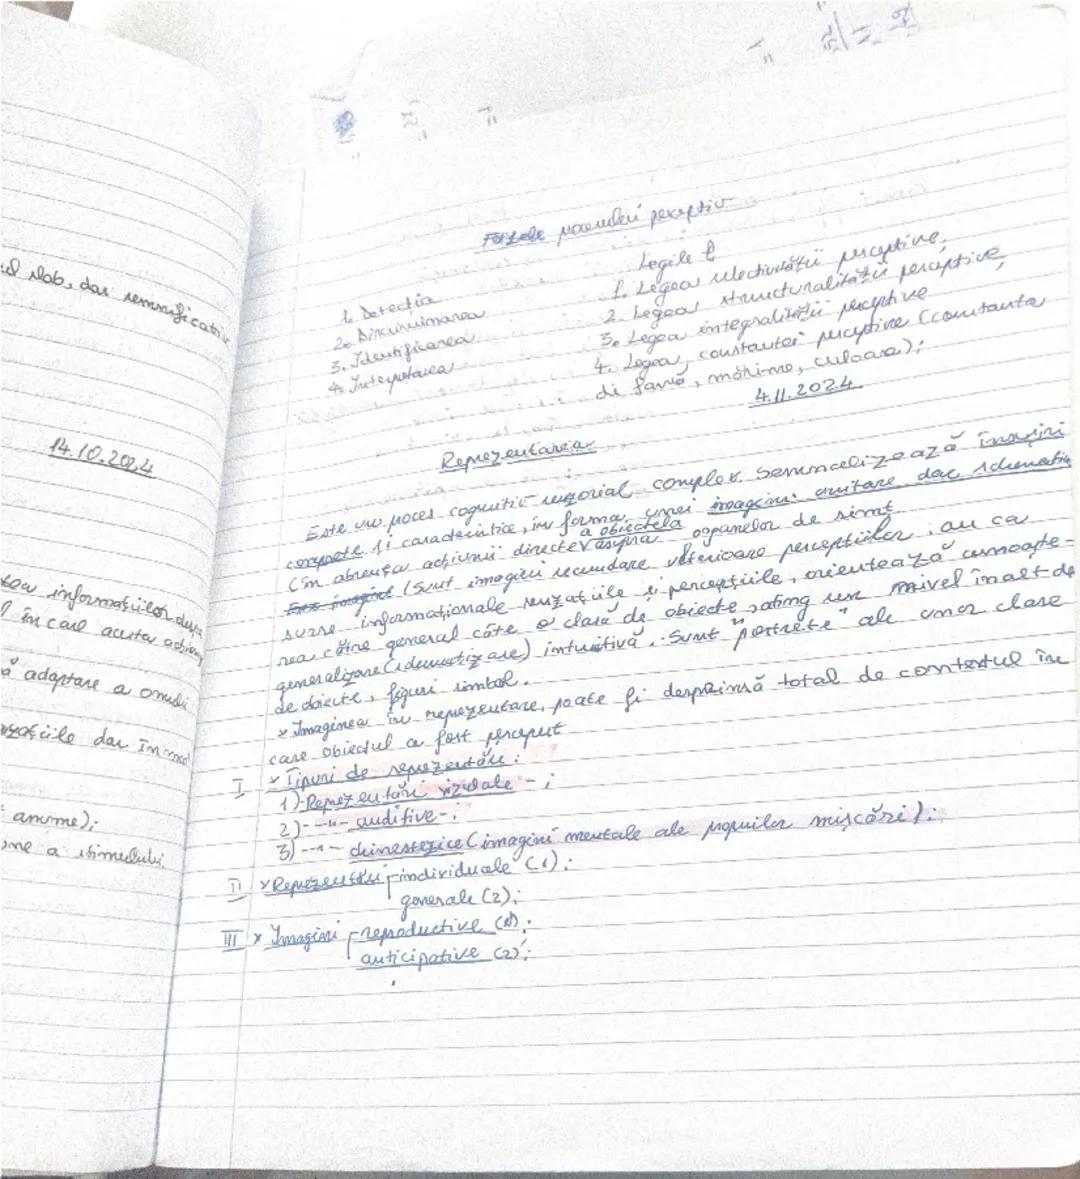 ul slab, dar semnificativ
14.10.2024
tea informațiilor despre
l în care acesta
ă adaptare a omului
dar în
anume);
one a stimulului
Fazele procesului perceptiv
1. Detecția
2. Discriminarea
3. Identificarea
4. Interpretarea
Legile
1. Legea selectivității perceptive;
2. Legea structuralității perceptive;
3. Legea integralității perceptive
4. Legea constantei perceptive (constanta
de formă, mărime, culoare);
4.11.2024
Reprezentarea
Este un proces cognitiv senzorial complex. Semnalizează însușiri
concrete și caracteristice, în forma unei imagini unitare dar schematice
(în absența acțiunii directe a obiectelor asupra organelor de simț
(Sunt imagini secundare ulterioare percepțiilor, au ca
surse informaționale senzațiile și percepțiile, orientează cunoaște-
rea către general către o clasă de obiecte, ating un nivel înalt de
generalizare (schematizare) intuitivă. Sunt "portrete" ale unor clase
de obiecte, figuri simbol.
× Imaginea în reprezentare, poate fi desprinsă total de contextul în
care obiectul a fost perceput
I × Tipuri de reprezentări:
1)-Reprezentări vizuale - ;
2)- -"- auditive- ;
3) -"- chinestezice (imagini mentale ale propriilor mișcări);
II × Reprezentări individuale (1);
generale (2);
III × Imagini reproductive (1);
anticipative (2);